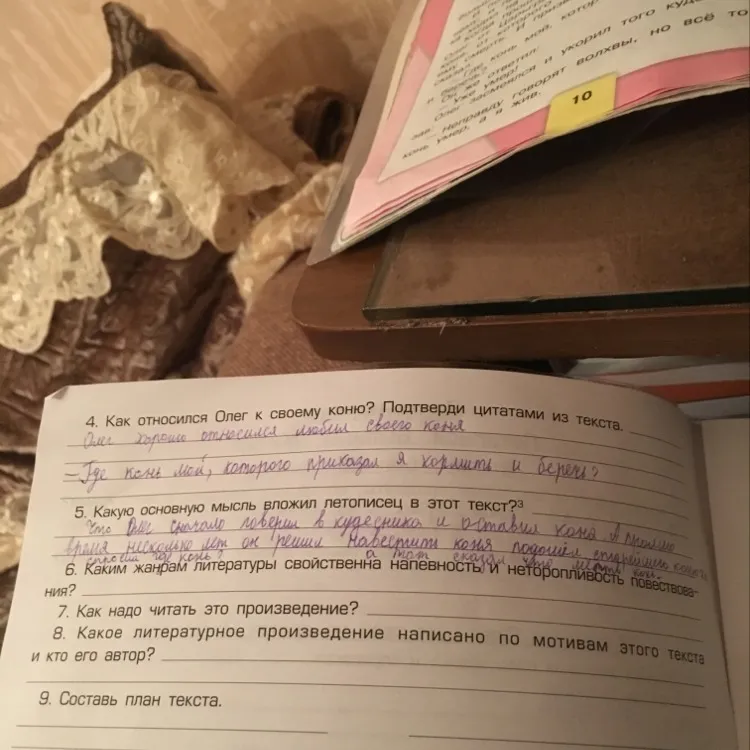 конь мой, котор
сказал:
— Где
и беречь?
Он же ответил:
— Уже умер!
Олег засмеялся и укорил того куде
зав:
— Неправду говорят волхвы, но всё то
конь умер, а я жив.
10
4. Как относился Олег к своему коню? Подтверди цитатами из текста.
Олег хорошо относился любил своего коня
— Где конь мой, которого приказал я кормить и беречь?
5. Какую основную мысль вложил летописец в этот текст?³
Что Олег сначало поверил в кудесника и оставил коня. А прошло
время несколько лет он решил навестить коня подошёл старейшему
спросил где конь? а тот сказал что конь
6. Каким жанрам литературы свойственна напевность и неторопливость повествова-
ния?
7. Как надо читать это произведение?
8. Какое литературное произведение написано по мотивам этого текста
и кто его автор?
9. Составь план текста.